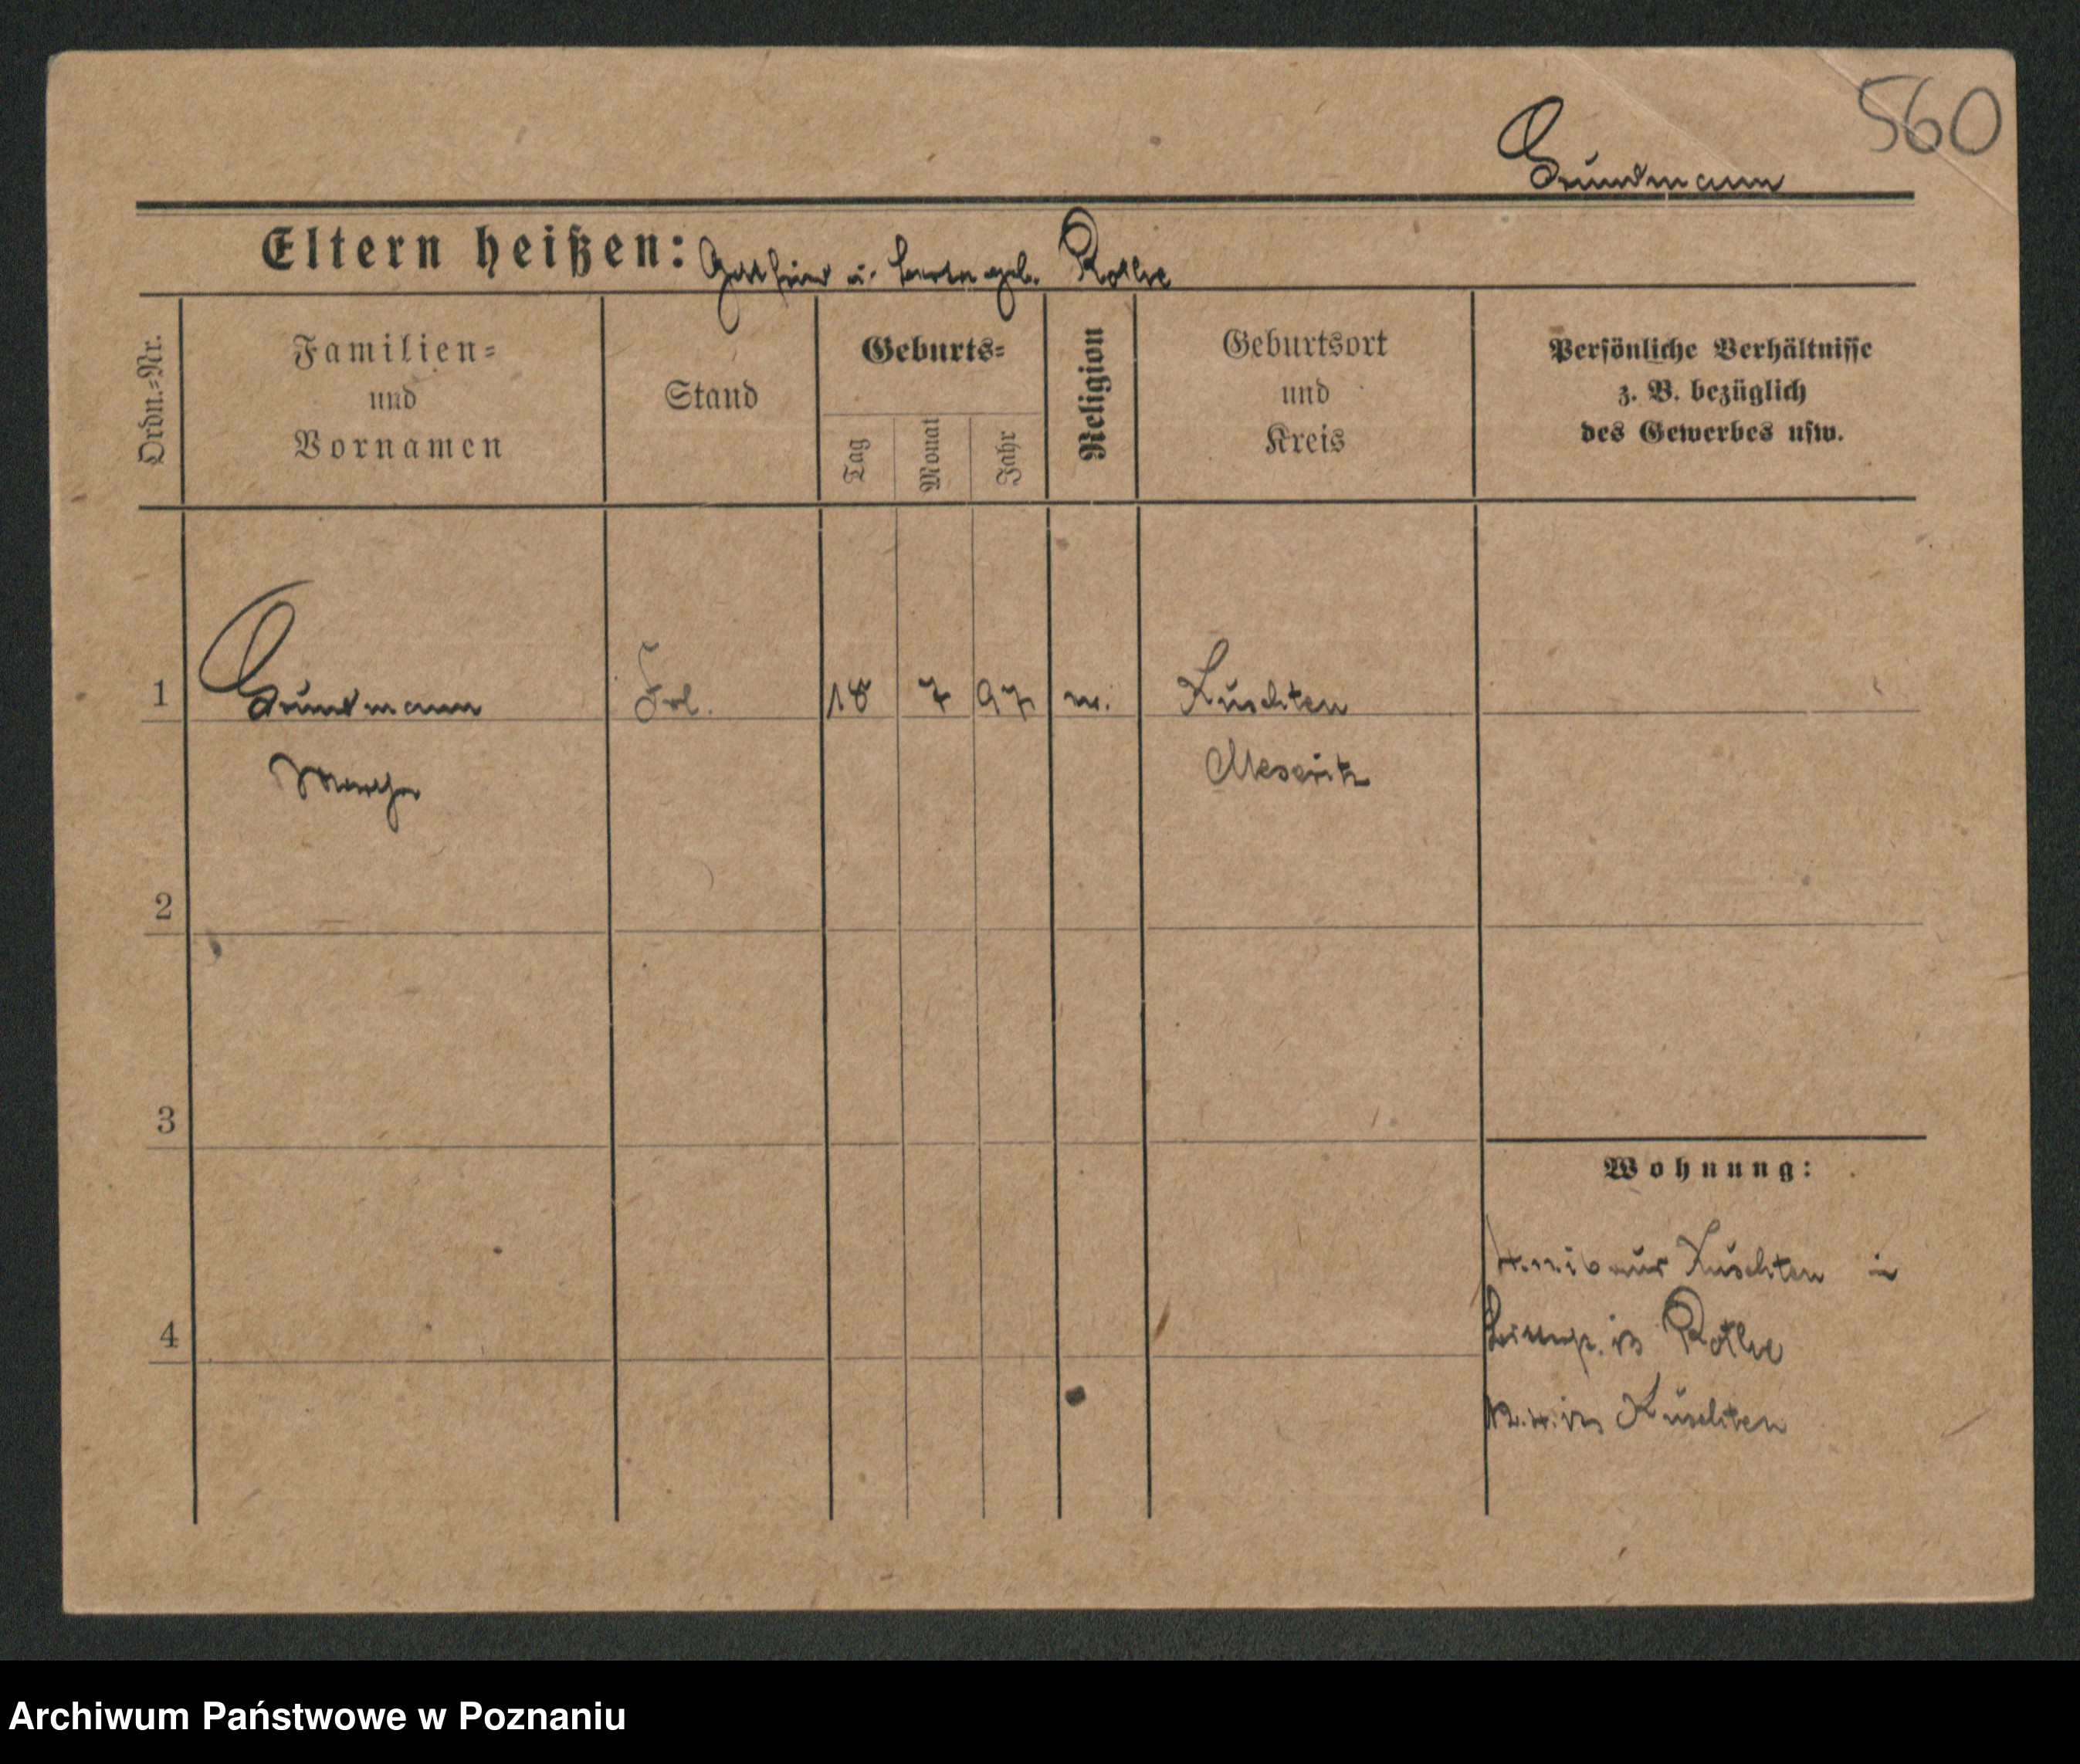 560
Grundmann
Eltern heißen: Gottfried u. Berta geb. Rothe
Ordn.=Nr.
Familien=
und
Vornamen
Stand
Geburts=
Tag
Monat
Jahr
Religion
Geburtsort
und
Kreis
Persönliche Verhältnisse
z. B. bezüglich
des Gewerbes usw.
1 Grundmann Frl. 18 7 97 Kuschten
Martha Meseritz
2
3
Wohnung:
Kuschten in
Rothe
4
Kuschten
Archiwum Państwowe w Poznaniu